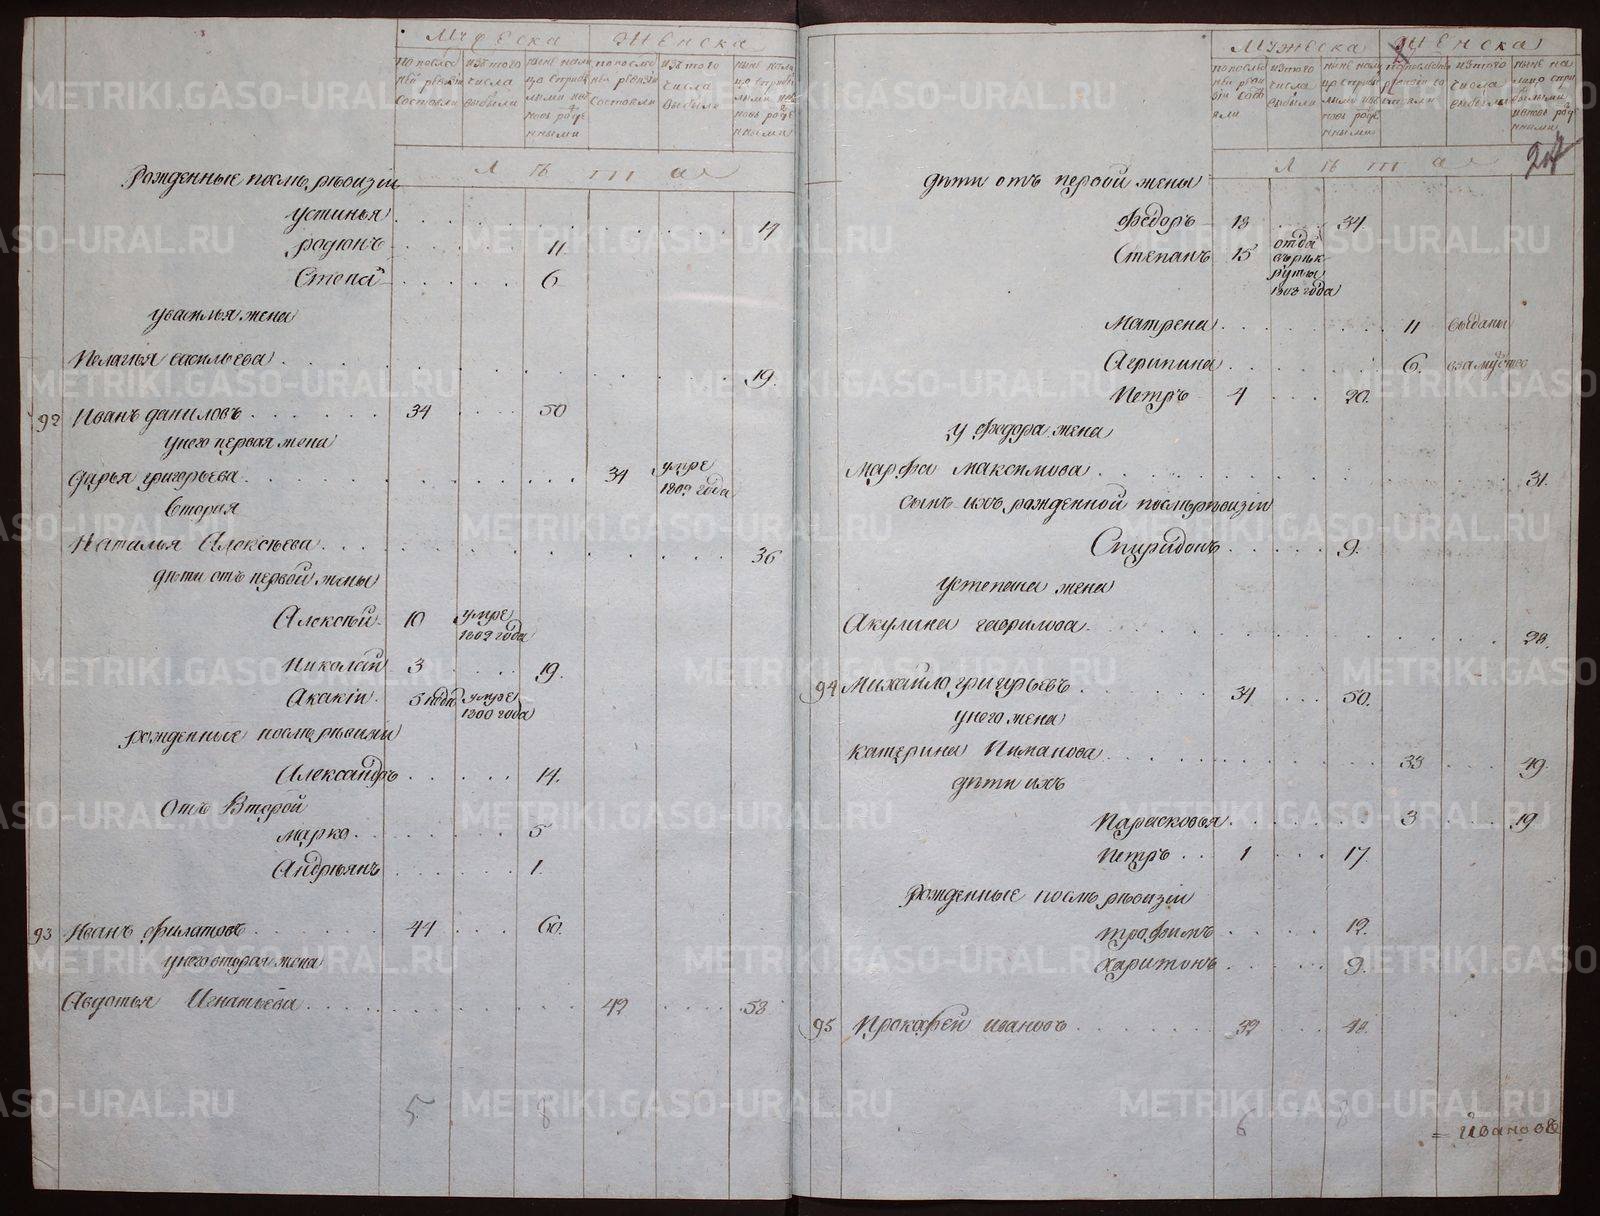 Мужеска Женска
по послед
ней ревизіи
состояли
изъ того
числа
выбыли
ныне нали
цо с прибы
лыми и в
новь рожде
нными
по последней
ревизіи
состояли
изъ того
числа
выбыли
ныне нали
цо с прибы
лыми и в
новь рожде
нными
Лѣта
Рожденные послѣ ревизіи
Устинья 17
родіонъ 11
Степа 6
у василья жена
Пелагья васильева 19
92 Иванъ даниловъ 34 50
у него первая жена
дарья григорьева 34 умре
1809 года
вторая
Наталья Алексѣева 36
дѣти отъ первой жены
Алексѣй 10 умре
1802 года
Николай 3 19
Акакій 5 умре
1800 года
рожденные послѣ ревизіи
Александръ 14
Отъ Второй
марко 5
Андреянъ 1
93 Иванъ филатовъ 44 60
у него вторая жена
Авдотья Игнатьева 42 58
5 8
Мужеска Женска
по послед
ней реви
зіи сост
яли
изъ того
числа
выбыли
ныне нали
цо с прибы
лыми и в
новь рожде
нными
изъ того
числа
выбыли
ныне на
лицо с при
былыми
и вновь рожде
нными
Лѣта
дѣти отъ первой жены
федоръ 18 34
Степанъ 15 отда
въ рек
руты
1808 года
Матрена 11 выданы
Агрипина 6 в замужство
Петръ 4 20
у федора жена
марфа максимова 31
сынъ ихъ рожденной послѣ ревизіи
Спиридонъ 9
у степана жена
Акулина гаврилова 28
94 Михайло григорьевъ 34 50
у него жена
катерина Пиманова 33 49
дѣти ихъ
Парасковья 3 19
Петръ 1 17
рожденные послѣ ревизіи
трофимъ 12
харитонъ 9
95 Прокофей ивановъ 32 48
6 8
= Ивановъ
METRIKI.GASO-URAL.RU